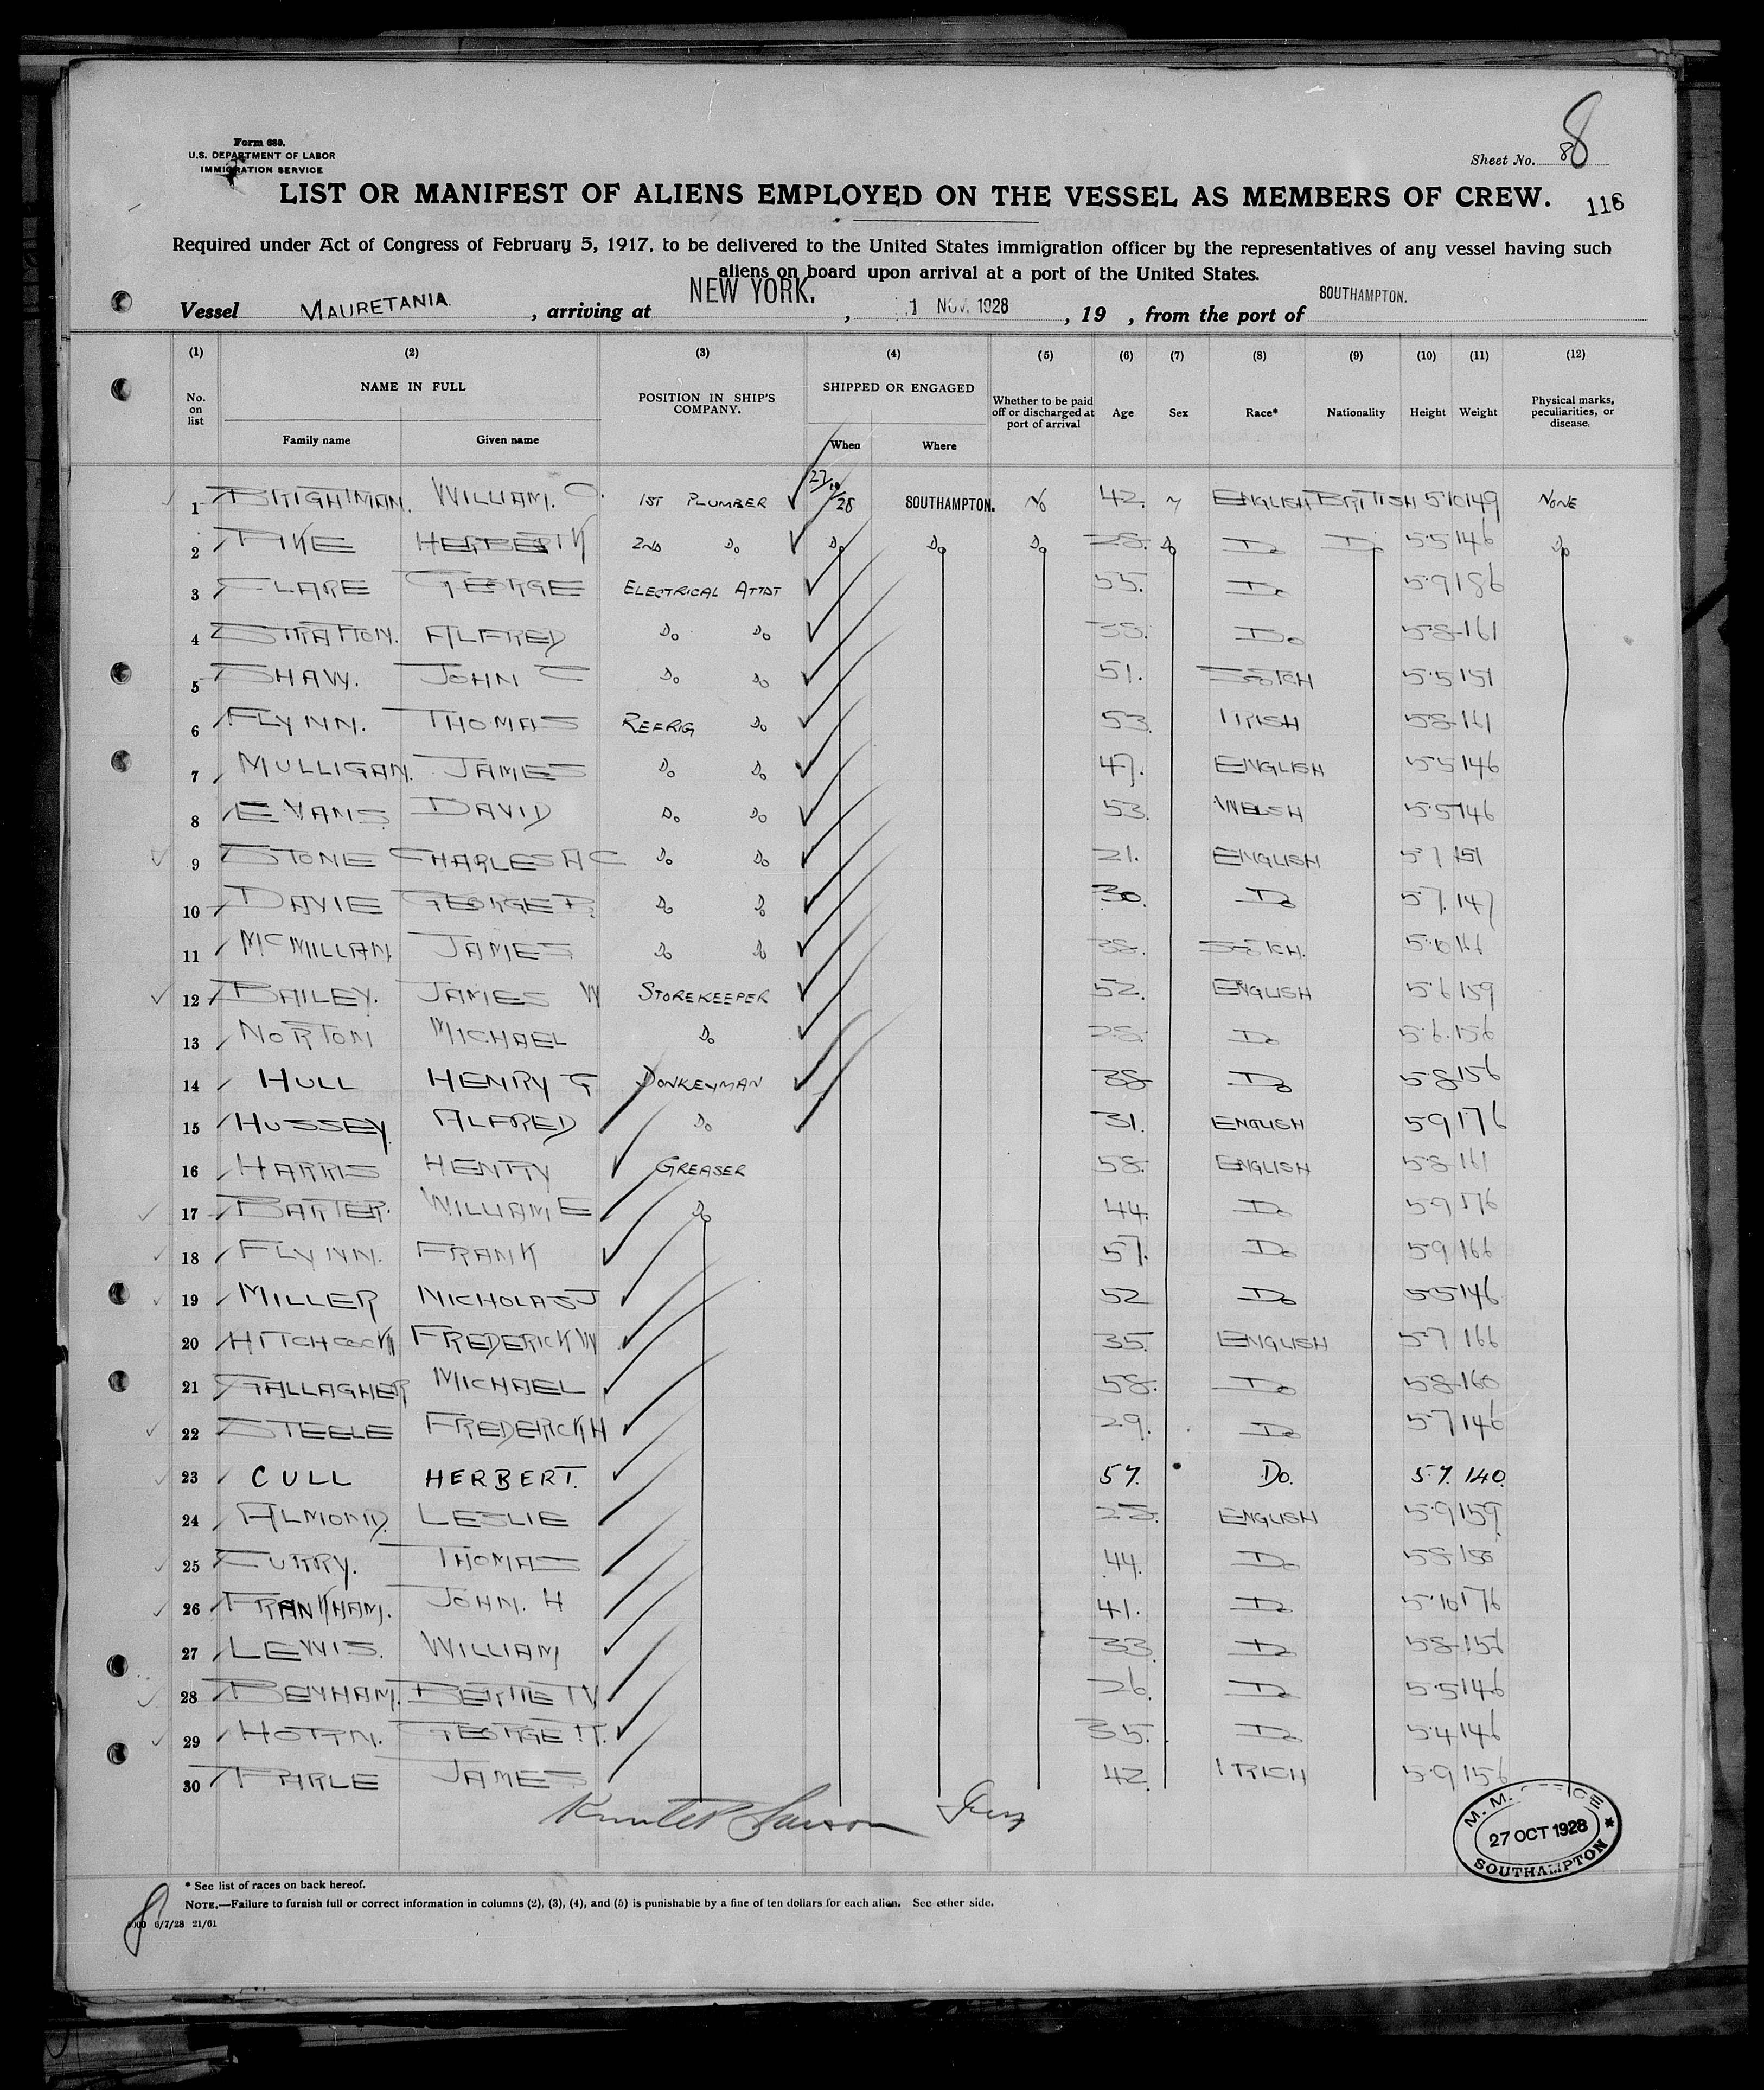 8
Form 680.
U.S. DEPARTMENT OF LABOR
IMMIGRATION SERVICE
Sheet No. 8
LIST OR MANIFEST OF ALIENS EMPLOYED ON THE VESSEL AS MEMBERS OF CREW.
116
Required under Act of Congress of February 5, 1917, to be delivered to the United States immigration officer by the representatives of any vessel having such
aliens on board upon arrival at a port of the United States.
Vessel MAURETANIA , arriving at NEW YORK. , 1 NOV. 1928 , 19 , from the port of SOUTHAMPTON.
(1) (2) (3) (4) (5) (6) (7) (8) (9) (10) (11) (12)
No. on list NAME IN FULL POSITION IN SHIP'S COMPANY. SHIPPED OR ENGAGED Whether to be paid off or discharged at port of arrival Age Sex Race* Nationality Height Weight Physical marks, peculiarities, or disease.
Family name Given name When Where
1 BRIGHTMAN. WILLIAM. C. 1ST PLUMBER 27/10/28 SOUTHAMPTON. No 42. M ENGLISH BRITISH 5 10 149 NONE
2 PIKE HERBERT K 2ND Do Do Do Do 28. Do Do Do 5.5 146 Do
3 CLARE GEORGE ELECTRICAL ATTDT 55. Do 5.9 186
4 STRATTON. ALFRED Do Do 38. Do 5.8 161
5 SHAW. JOHN C Do Do 51. SCOTCH 5.5 151
6 FLYNN. THOMAS REFRIG Do 53. IRISH 5.8 161
7 MULLIGAN. JAMES Do Do 47. ENGLISH 5.5 146
8 EVANS DAVID Do Do 53. WELSH 5.5 146
9 STONE CHARLES A C Do Do 21. ENGLISH 5.7 151
10 DAVIE GEORGE B. Do Do 30. Do 5.7. 147
11 MCMILLAN. JAMES Do Do 38. SCOTCH. 5.10 166
12 BAILEY. JAMES W STOREKEEPER 52. ENGLISH 5.6 159
13 NORTON MICHAEL Do 28. Do 5.6. 156
14 HULL HENRY G DONKEYMAN 38 Do 5.8 156
15 HUSSEY. ALFRED Do 31. ENGLISH 5.9 176
16 HARRIS HENRY GREASER 58. ENGLISH 5.8 161
17 BARTER. WILLIAM E Do 44. Do 5.9 176
18 FLYNN. FRANK 57. Do 5.9 166
19 MILLER NICHOLAS J 52 Do 5.5 146
20 HITCHCOCK FREDERICK W 35. ENGLISH 5.7 166
21 GALLAGHER MICHAEL 58. Do 5.8 160
22 STEELE FREDERICK H 29. Do 5.7 146
23 CULL HERBERT. 57. Do. 5.7. 140.
24 ALMOND. LESLIE 28. ENGLISH 5.9 159
25 CURRY. THOMAS 44. Do 5.8 156
26 FRANKHAM. JOHN. H 41. Do 5.10 176
27 LEWIS. WILLIAM 33. Do 5.8 156
28 BENHAM. BERTIE W 26. Do 5.5 146
29 HORN. GEORGE H. 35. Do 5.4 146
30 PARLE JAMES 42. IRISH 5.9 156
27 OCT 1928
SOUTHAMPTON
* See list of races on back hereof.
NOTE.—Failure to furnish full or correct information in columns (2), (3), (4), and (5) is punishable by a fine of ten dollars for each alien. See other side.
6/7/28 21/61
8